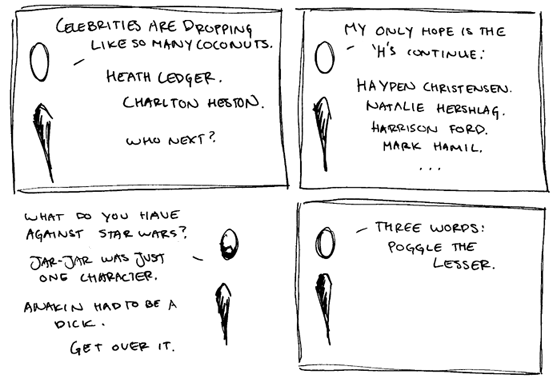 CELEBRITIES ARE DROPPING
LIKE SO MANY COCONUTS.
HEATH LEDGER.
CHARLTON HESTON.
WHO NEXT?
MY ONLY HOPE IS THE
'H'S CONTINUE:
HAYDEN CHRISTENSEN.
NATALIE HERSHLAG.
HARRISON FORD.
MARK HAMIL.
...
WHAT DO YOU HAVE
AGAINST STAR WARS?
JAR-JAR WAS JUST
ONE CHARACTER.
ANAKIN HAD TO BE A
DICK.
GET OVER IT.
THREE WORDS:
POGGLE THE
LESSER.